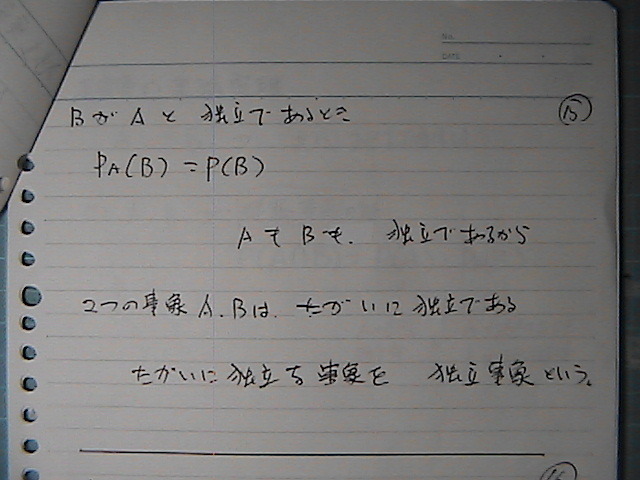 No.
DATE
BがAと 独立であるとき ⑮
P_A(B) = P(B)
AもBも. 独立であるから
2つの事象A.Bは. たがいに独立である
たがいに独立な事象を 独立事象という。
⑯